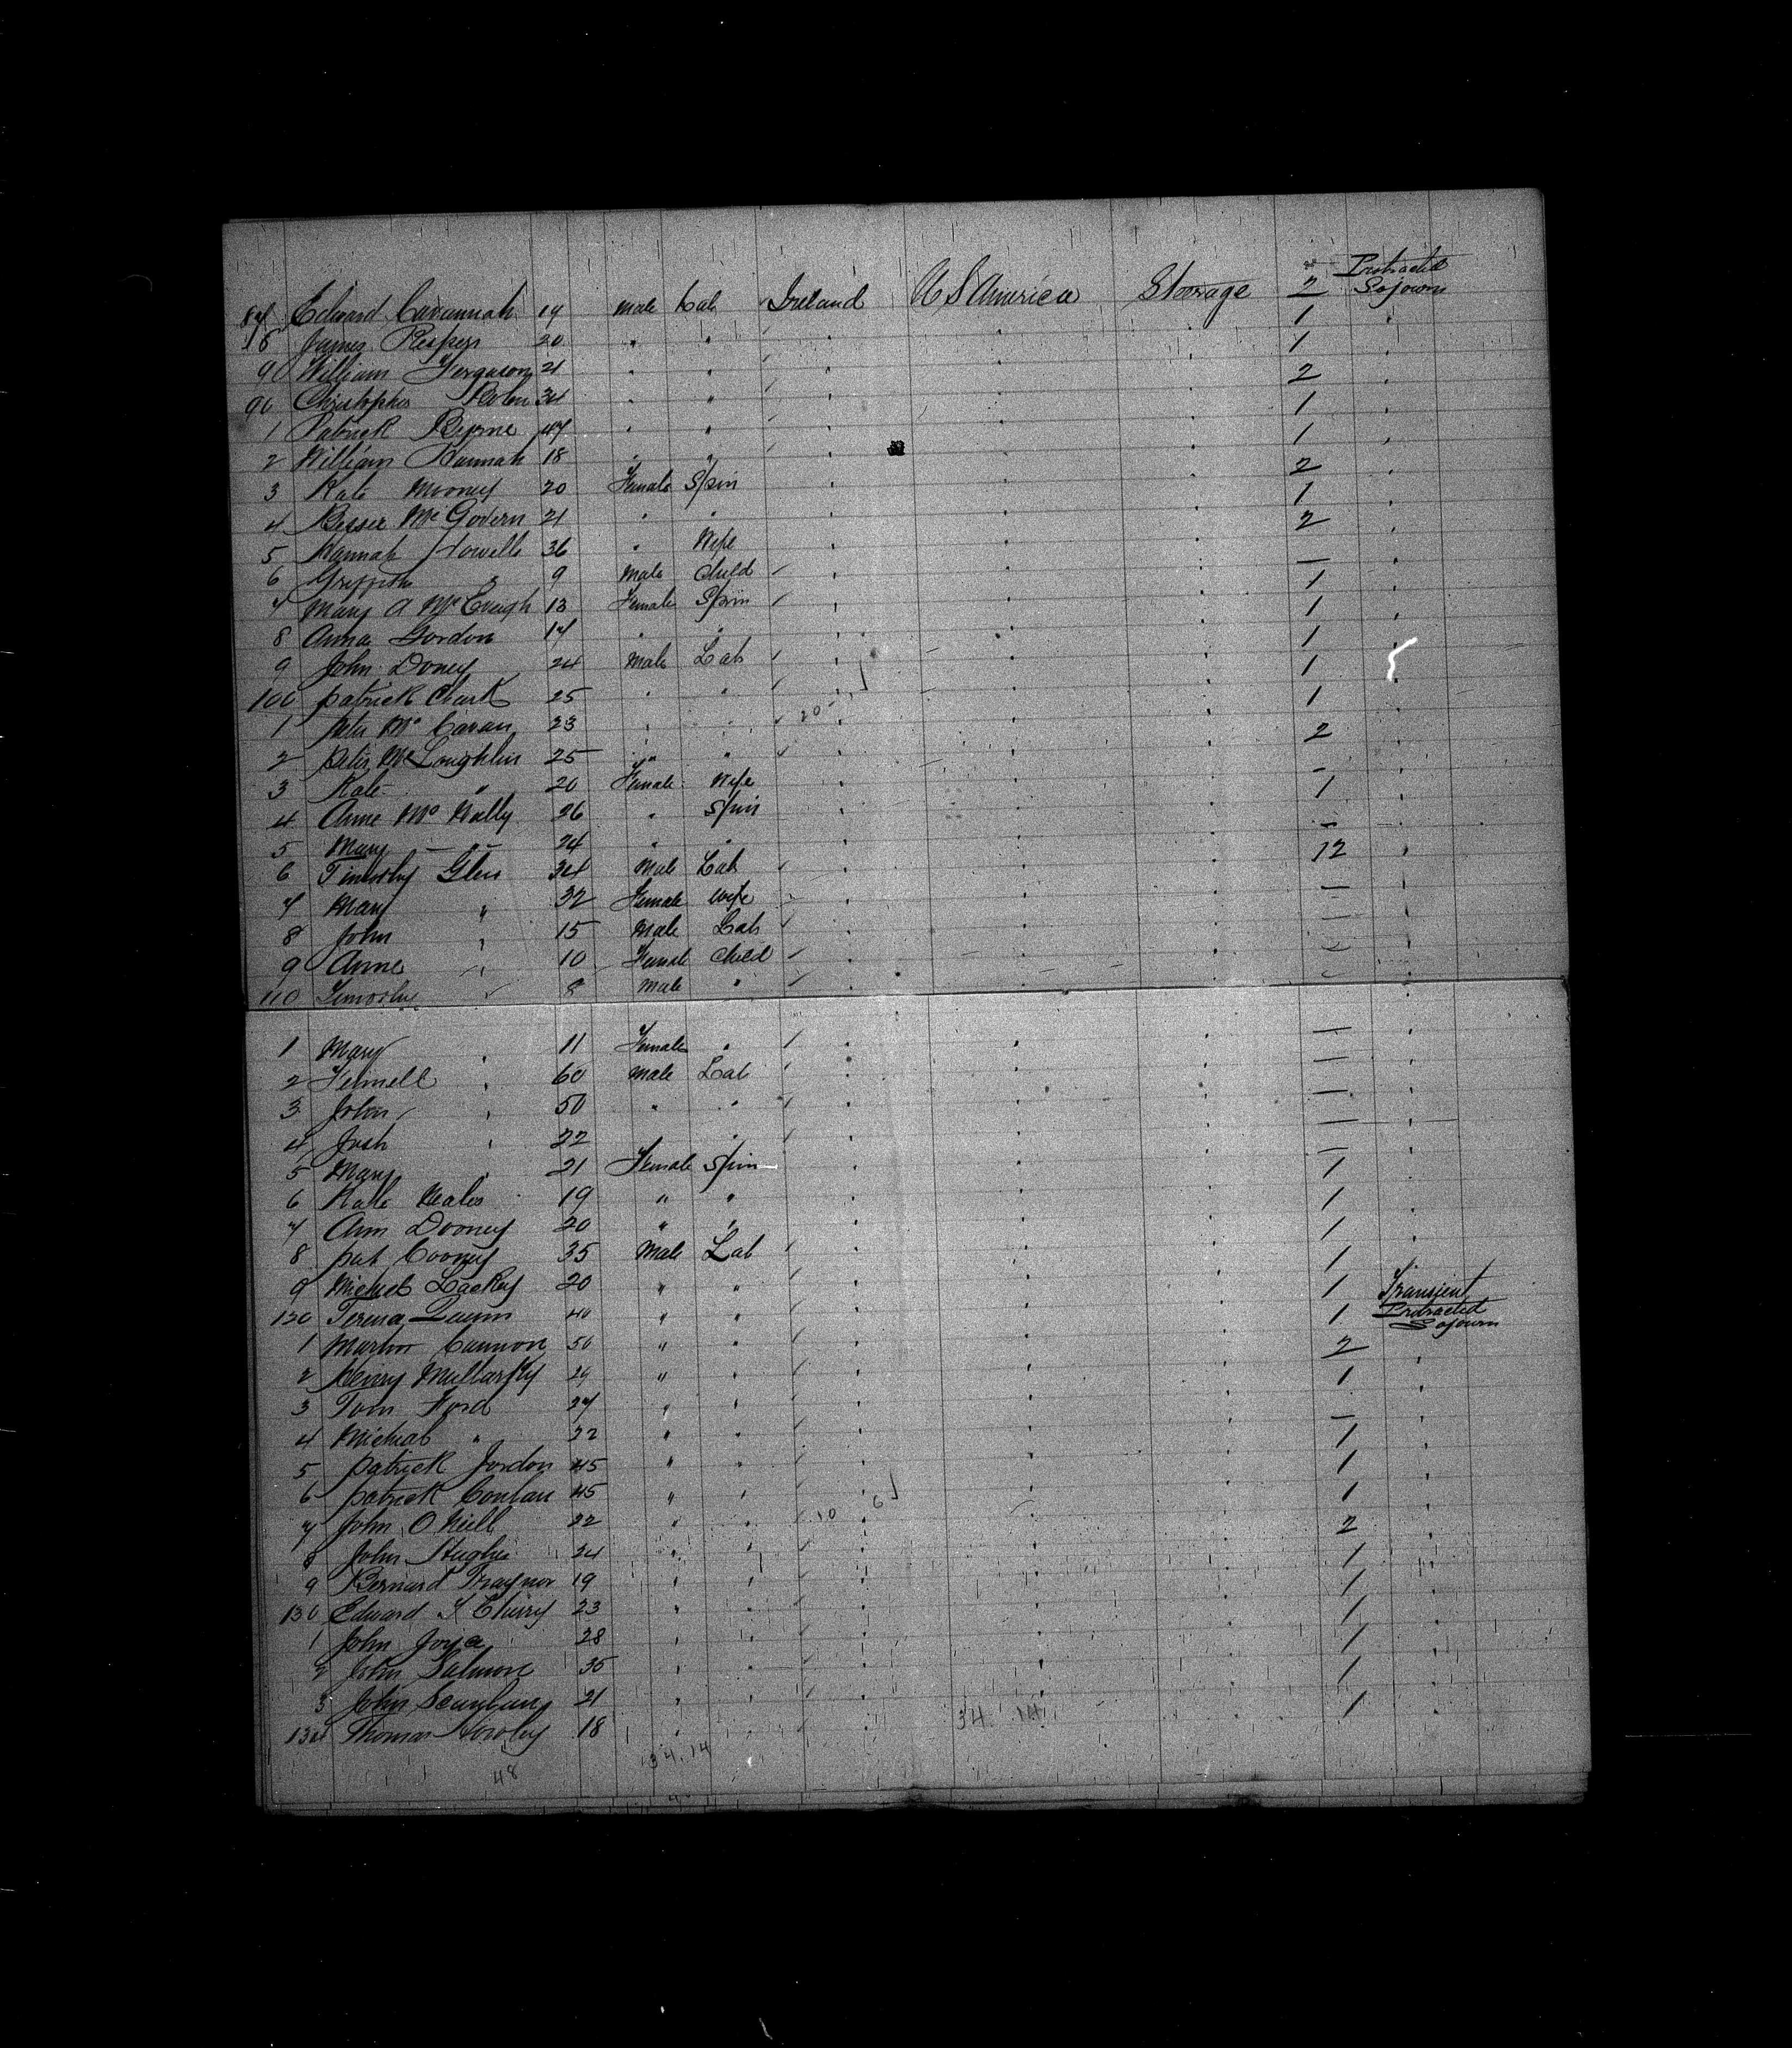 87 Edward Cavannah 19 Male Lab Ireland U S America Steerage 2 Protracted Sojourn
8 James 20 " " 1
9 William Ferguson 21 " " 1
90 Christopher 34 " " 2
1 Patrick Byrne 47 " " 1
2 William Hannah 18 " " 1
3 Kate Mooney 20 Female Spin 2
4 Bessie McGovern 21 " " 1
5 Hannah Howells 36 " Wife 2
6 Griffith " 9 Male Child —
7 Mary A McCreigh 13 Female Spin 1
8 Anna Gordon 17 " " 1
9 John Doney 24 Male Lab 1
100 Patrick Clark 25 " " 1
1 Peter McCavan 23 " " 1
2 Peter McLoughlin 25 " " 2
3 Kate " 20 Female Wife —
4 Anne McNally 26 " Spin 1
5 Mary " 24 " " —
6 Timothy Glen 34 Male Lab 12
7 Mary " 32 Female Wife —
8 John " 15 Male Lab —
9 Anne " 10 Female Child —
110 Timothy " 8 Male " —
1 Mary " 11 Female " —
2 " 60 Male Lab —
3 John " 50 " " —
4 " 22 " " —
5 Mary " 21 Female Spin —
6 Kate 19 " " 1
7 Ann Dooney 20 " " 1
8 Pat Cooney 35 Male Lab 1
9 Michael Lackey 20 " " 1
120 Quinn 40 " " 1 Transient
1 Martin Cannon 50 " " 1 Protracted Sojourn
2 Henry Mullarky 29 " " 2
3 Tom Ford 27 " " 1
4 Michael " 22 " " —
5 Patrick Jordon 45 " " 1
6 Patrick Conlan 45 " " 1
7 John O Neill 22 " " 1
8 John Hughes 24 " " 2
9 Bernard Traynor 19 " " 1
130 Edward 23 " " 1
1 John Joyce 28 " " 1
2 John Salmon 35 " " 1
3 John Scanlan 21 " " 1
134 Thomas 18 " " 1
34 14
34.14
48